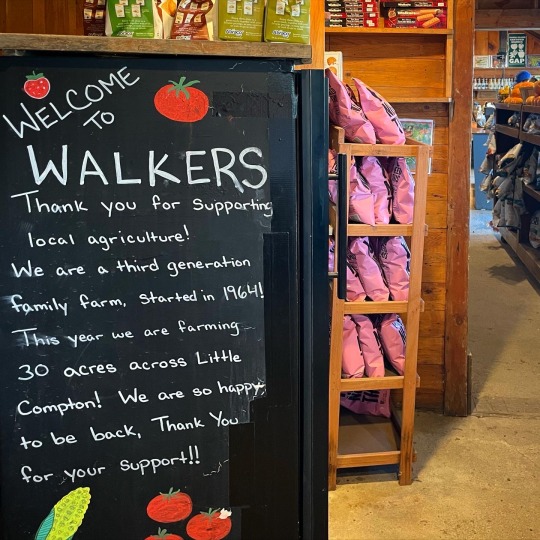 WELCOME
TO
WALKERS
Thank you for supporting
local agriculture!
We are a third generation
family farm, started in 1964!
This year we are farming
30 acres across Little
Compton! We are so happy
to be back, Thank You
for your support!!
GAP